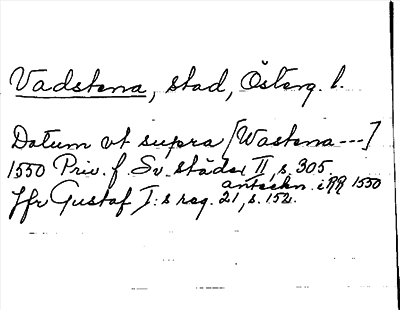 Vadstena, stad, Österg. l.
Datum vt supra [Wastena ---]
1550 Priv. f. Sv. städer II, s. 305.
anteckn. i RR 1550
Jfr Gustaf I:s reg. 21, s. 152.